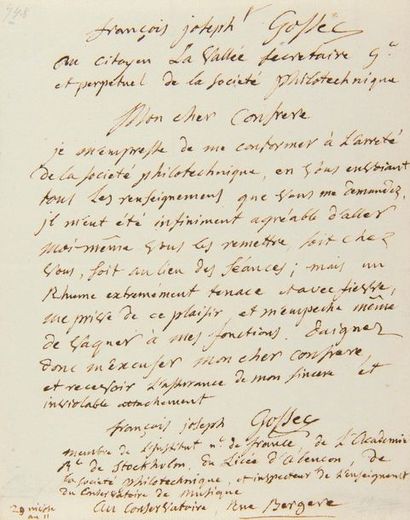 françois joseph Gossec
au citoyen La Vallée secretaire g.
et perpetuel de la Société philotechnique
Mon cher Confrere
je m'empresse de me conformer à L'arreté
de la société philotechnique, en vous envoiant
tous les renseignemens que vous me demandez,
il m'eut été infiniment agréable d'aller
moi-même vous les remettre, soit chez
vous, soit au lieu des séances; mais un
Rhume extremément tenace et avec fievre,
me prive de ce plaisir, et m'empeche même
de vaquer à mes fonctions. daignez
donc m'Excuser mon cher confrere,
et recevoir l'assurance de mon sincere et
inviolable attachement
françois joseph Gossec
membre de l'institut n. de france, de L'Academie
R. de Stockholm, du Licée d'alencon, de
la Société philotechnique, et inspecteur de l'Enseignement
du Conservatoire de musique
au Conservatoire, Rue Bergere
29
an 11